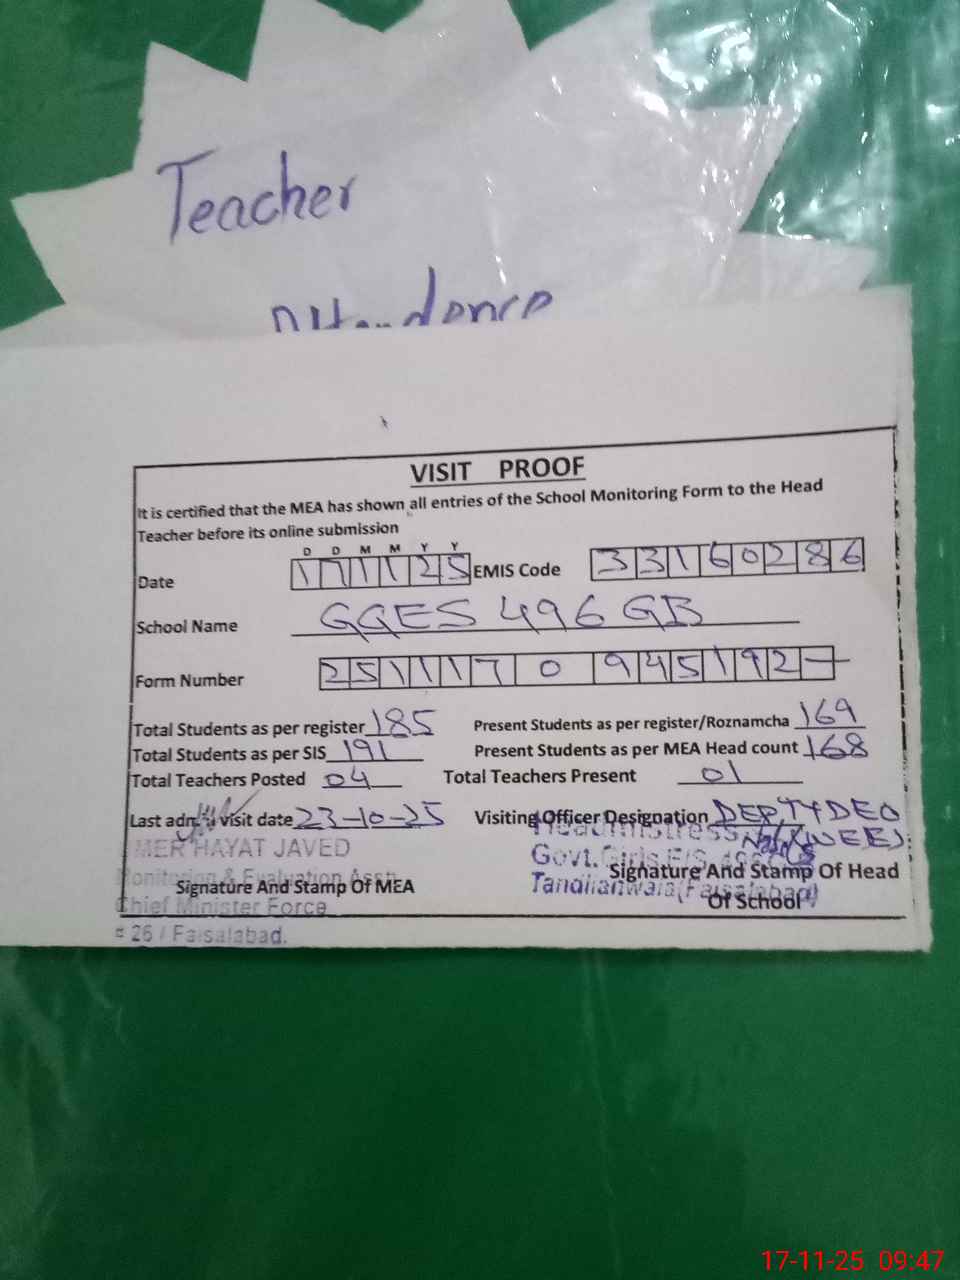 Teacher
Attendence
VISIT PROOF
It is certified that the MEA has shown all entries of the School Monitoring Form to the Head
Teacher before its online submission
D D M M Y Y
Date 171125 EMIS Code 33160286
School Name GGES 496 GB
Form Number 251117 0 945192-
Total Students as per register 185 Present Students as per register/Roznamcha 169
Total Students as per SIS 191 Present Students as per MEA Head count 168
Total Teachers Posted 04 Total Teachers Present 01
Last adm visit date 23-10-25 Visiting Officer Designation DEPTY DEO
(WEE)
Headmistress
MER HAYAT JAVED
Govt. Girls E/S
Signature And Stamp Of Head
Monitoring & Evaluation Asstt
Signature And Stamp Of MEA
Tandlianwala (Faisalabad)
Of School
Chief Minister Force
# 26 / Faisalabad.
17-11-25 09:47